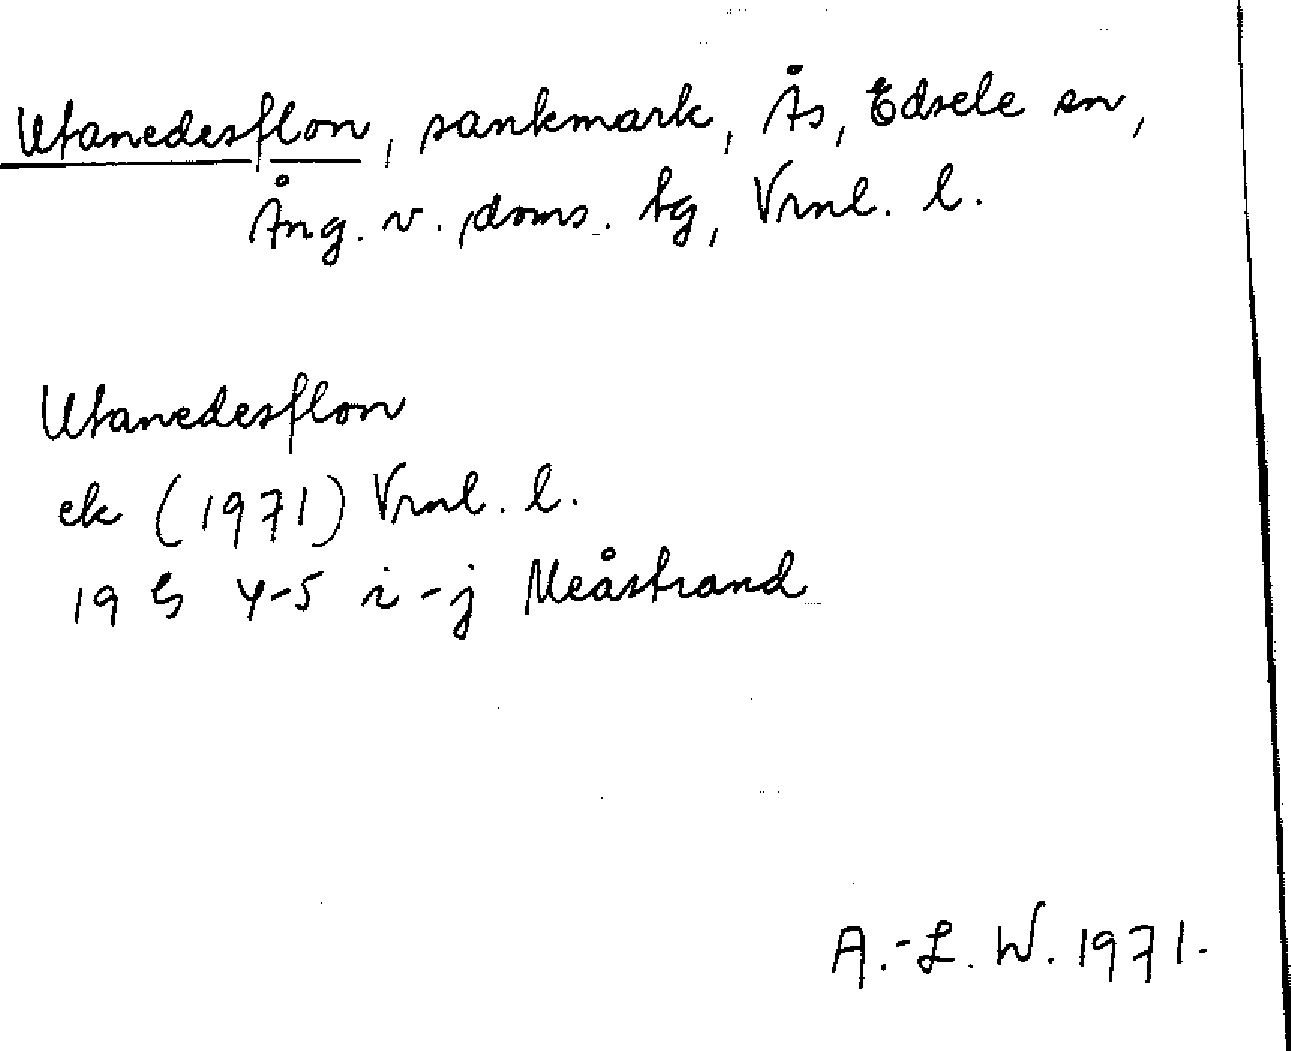 Utanedesflon, sankmark, Ås, Edsele sn,
Ång. v. doms. tg, Vrnl. l.
Utanedesflon
ek (1971) Vrnl. l.
19 G 4-5 i-j Meåstrand
A.-L. W. 1971.